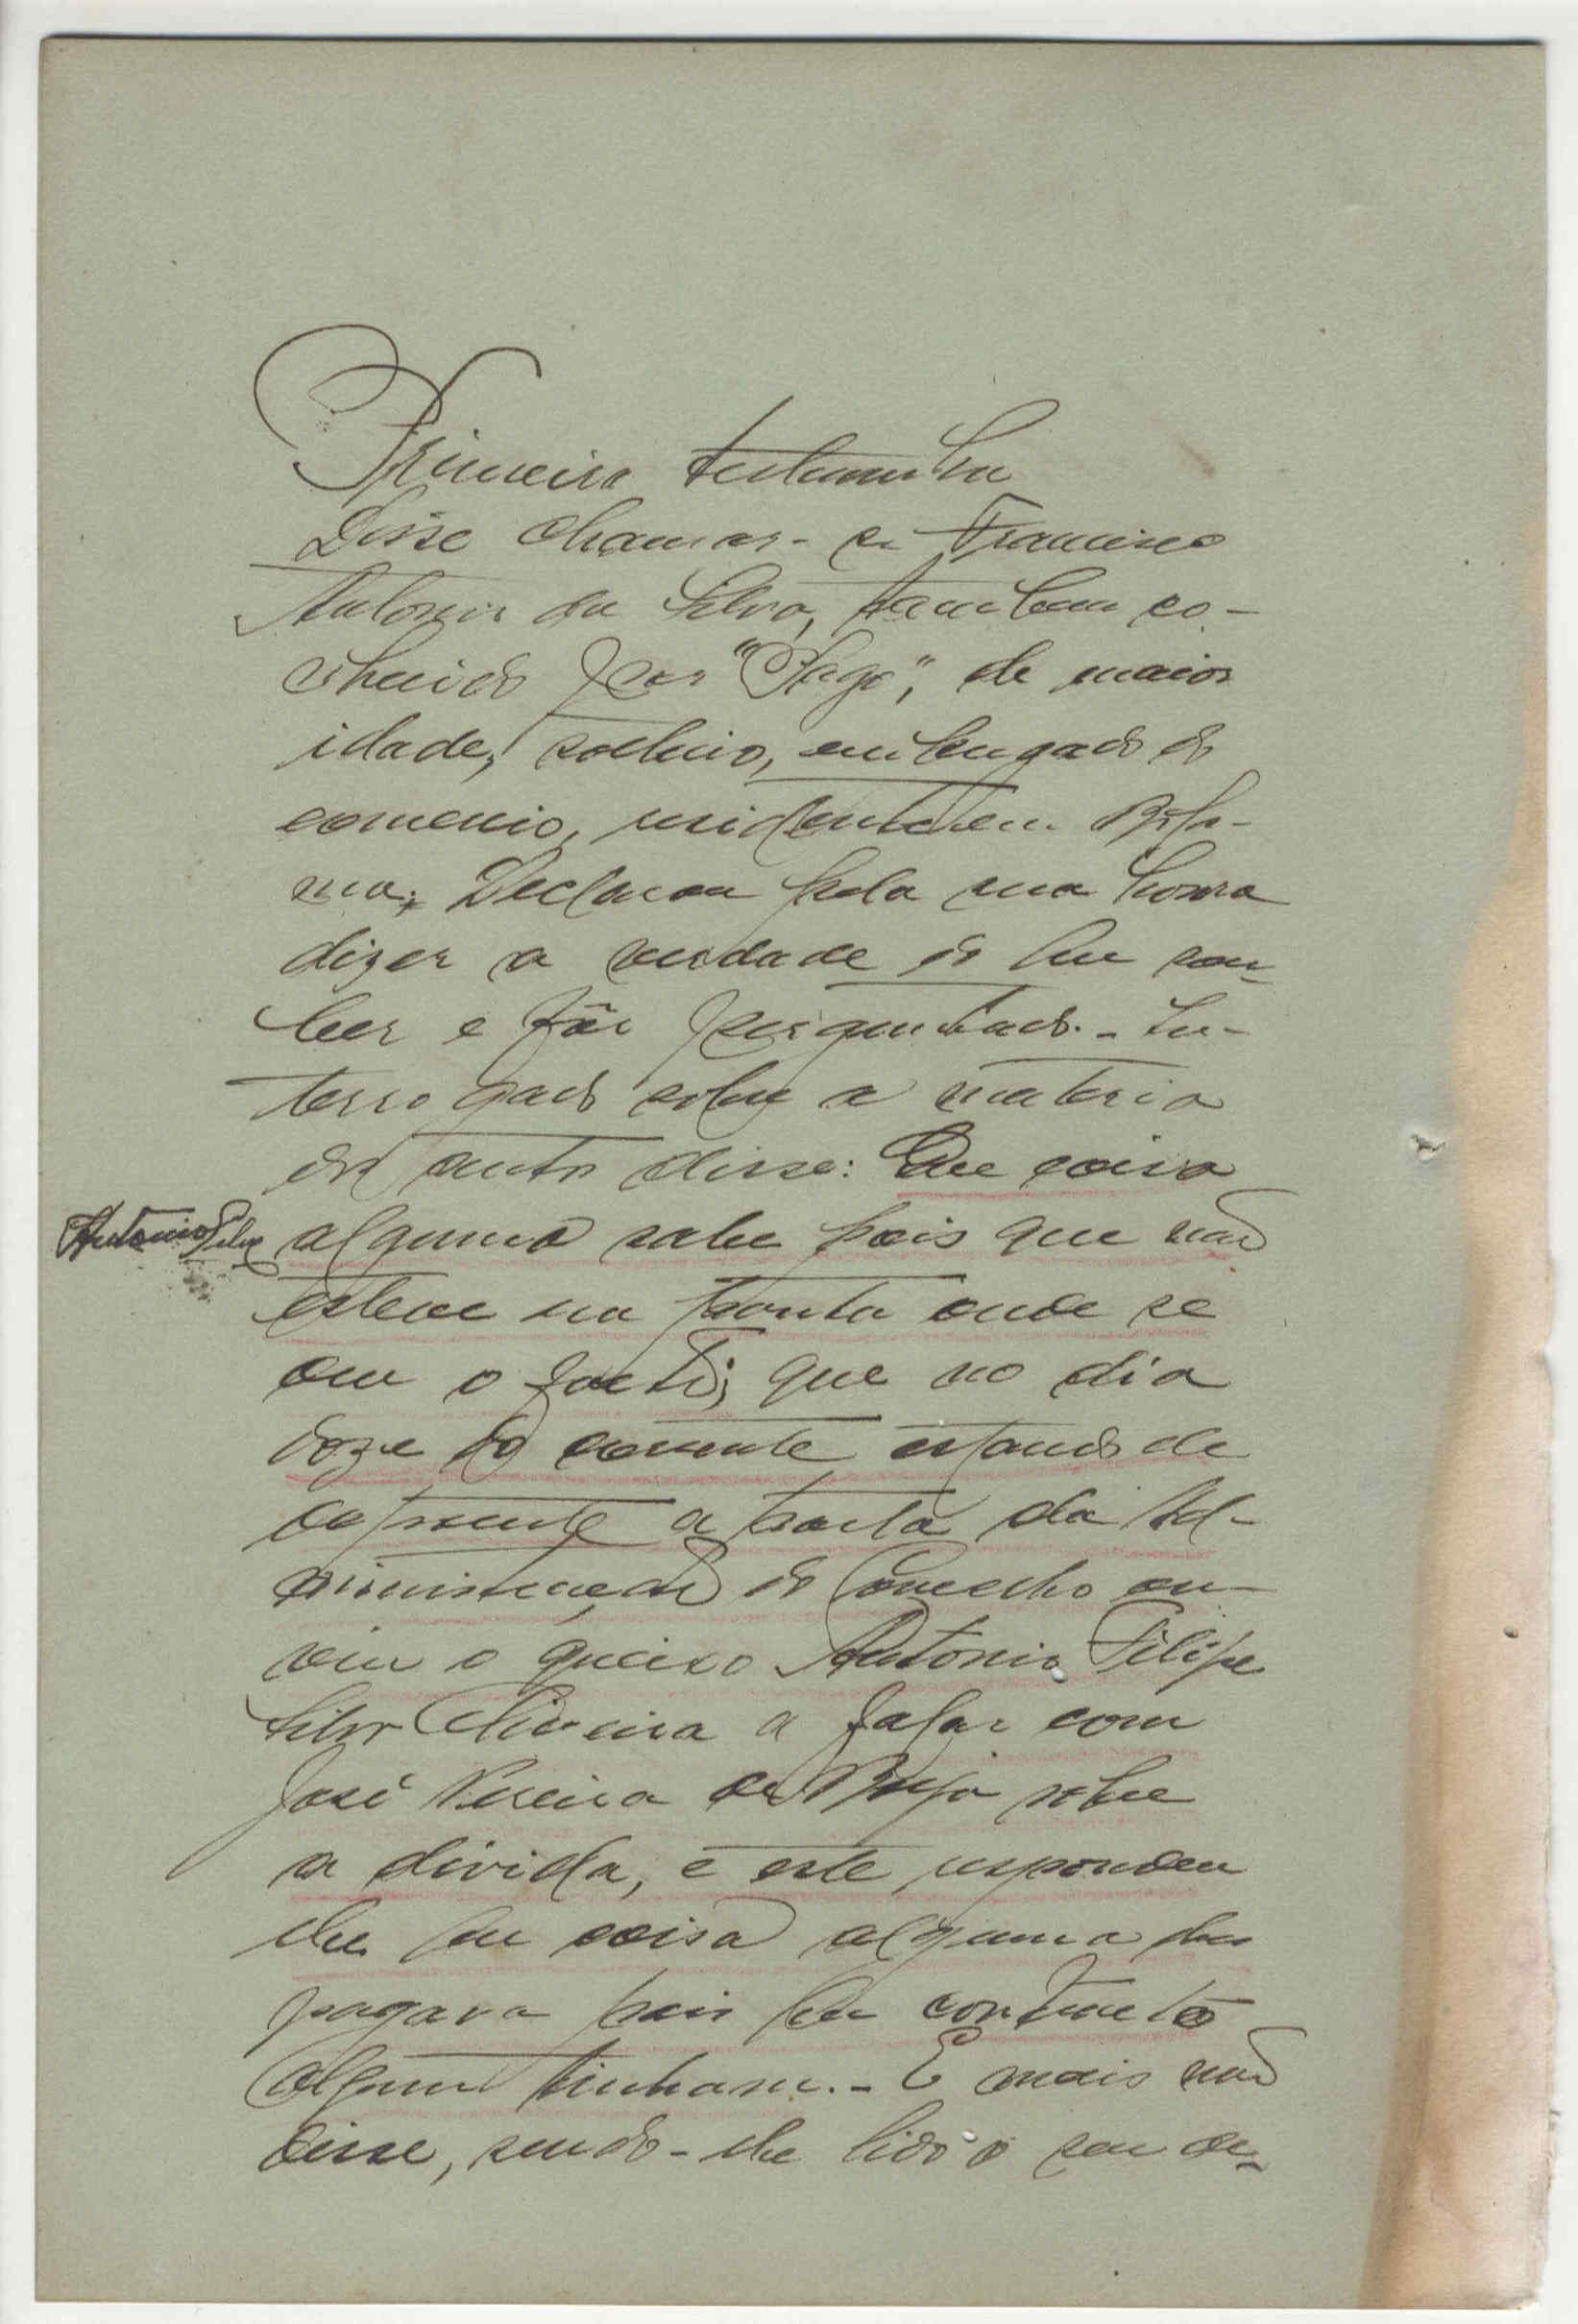 Primeira testemunha
Disse chamar-se Francisco
Antonio da Silva, tambem co-
nhecido por "Pago", de maior
idade, solteiro, empregado do
comercio, residente em Bola-
ma. Declarou pela sua honra
dizer a verdade do que sou-
ber e fôr perguntado. - In-
terrogado sobre a materia
do auto disse: Que coisa
Antonio Silva
alguma sabe pois que não
esteve na ponta onde se
deu o facto; que no dia
doze do corrente estando de
a porta da Ad-
ministração do Concelho ou-
viu o queixoso Antonio Filipe
Silva Oliveira a falar com
José Pereira de sobre
a divida, e este respondeu
lhe que coisa alguma lhe
pagava pois que contracto
algum tinham. - E mais não
disse, sendo-lhe lido o seu de-